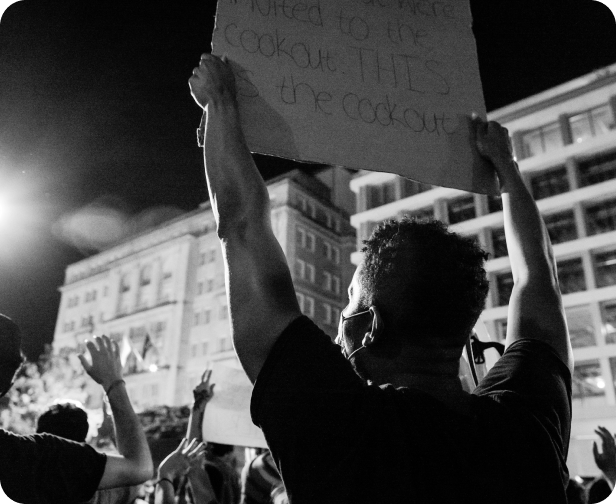 were
invited to the
cookout. THIS
is the cookout